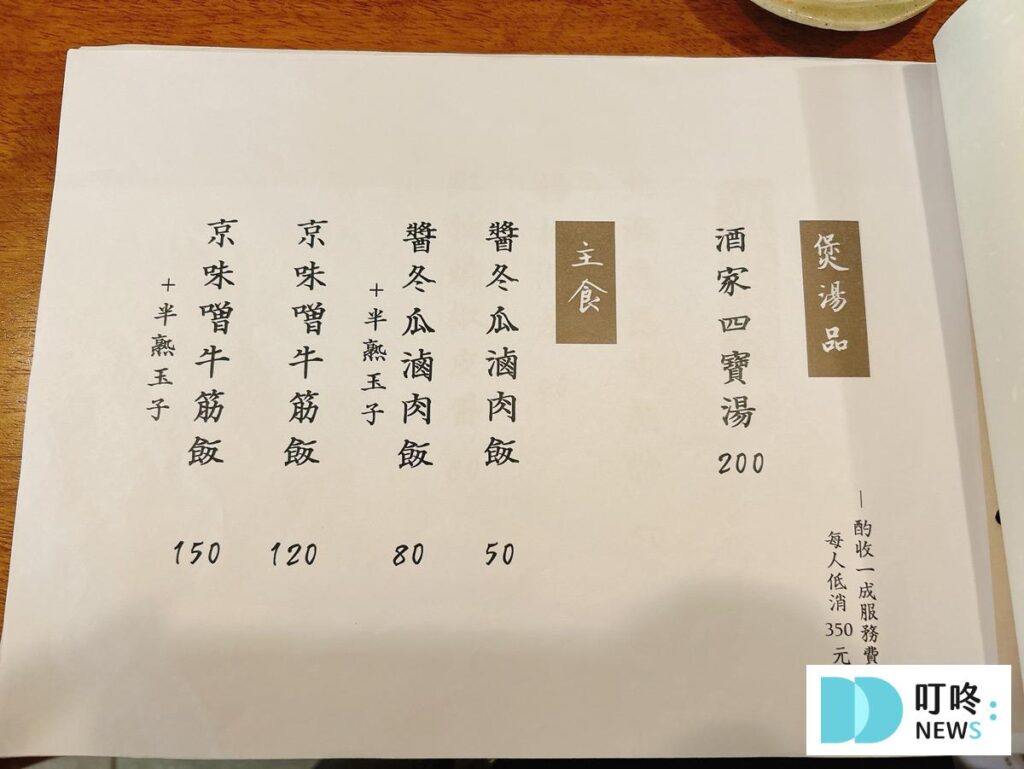 煲湯品
酒家四寶湯 200
主食
醬冬瓜滷肉飯 50
醬冬瓜滷肉飯
+半熟玉子 80
京味噌牛筋飯 120
京味噌牛筋飯
+半熟玉子 150
—酌收一成服務費
每人低消350元
叮咚
NEWS